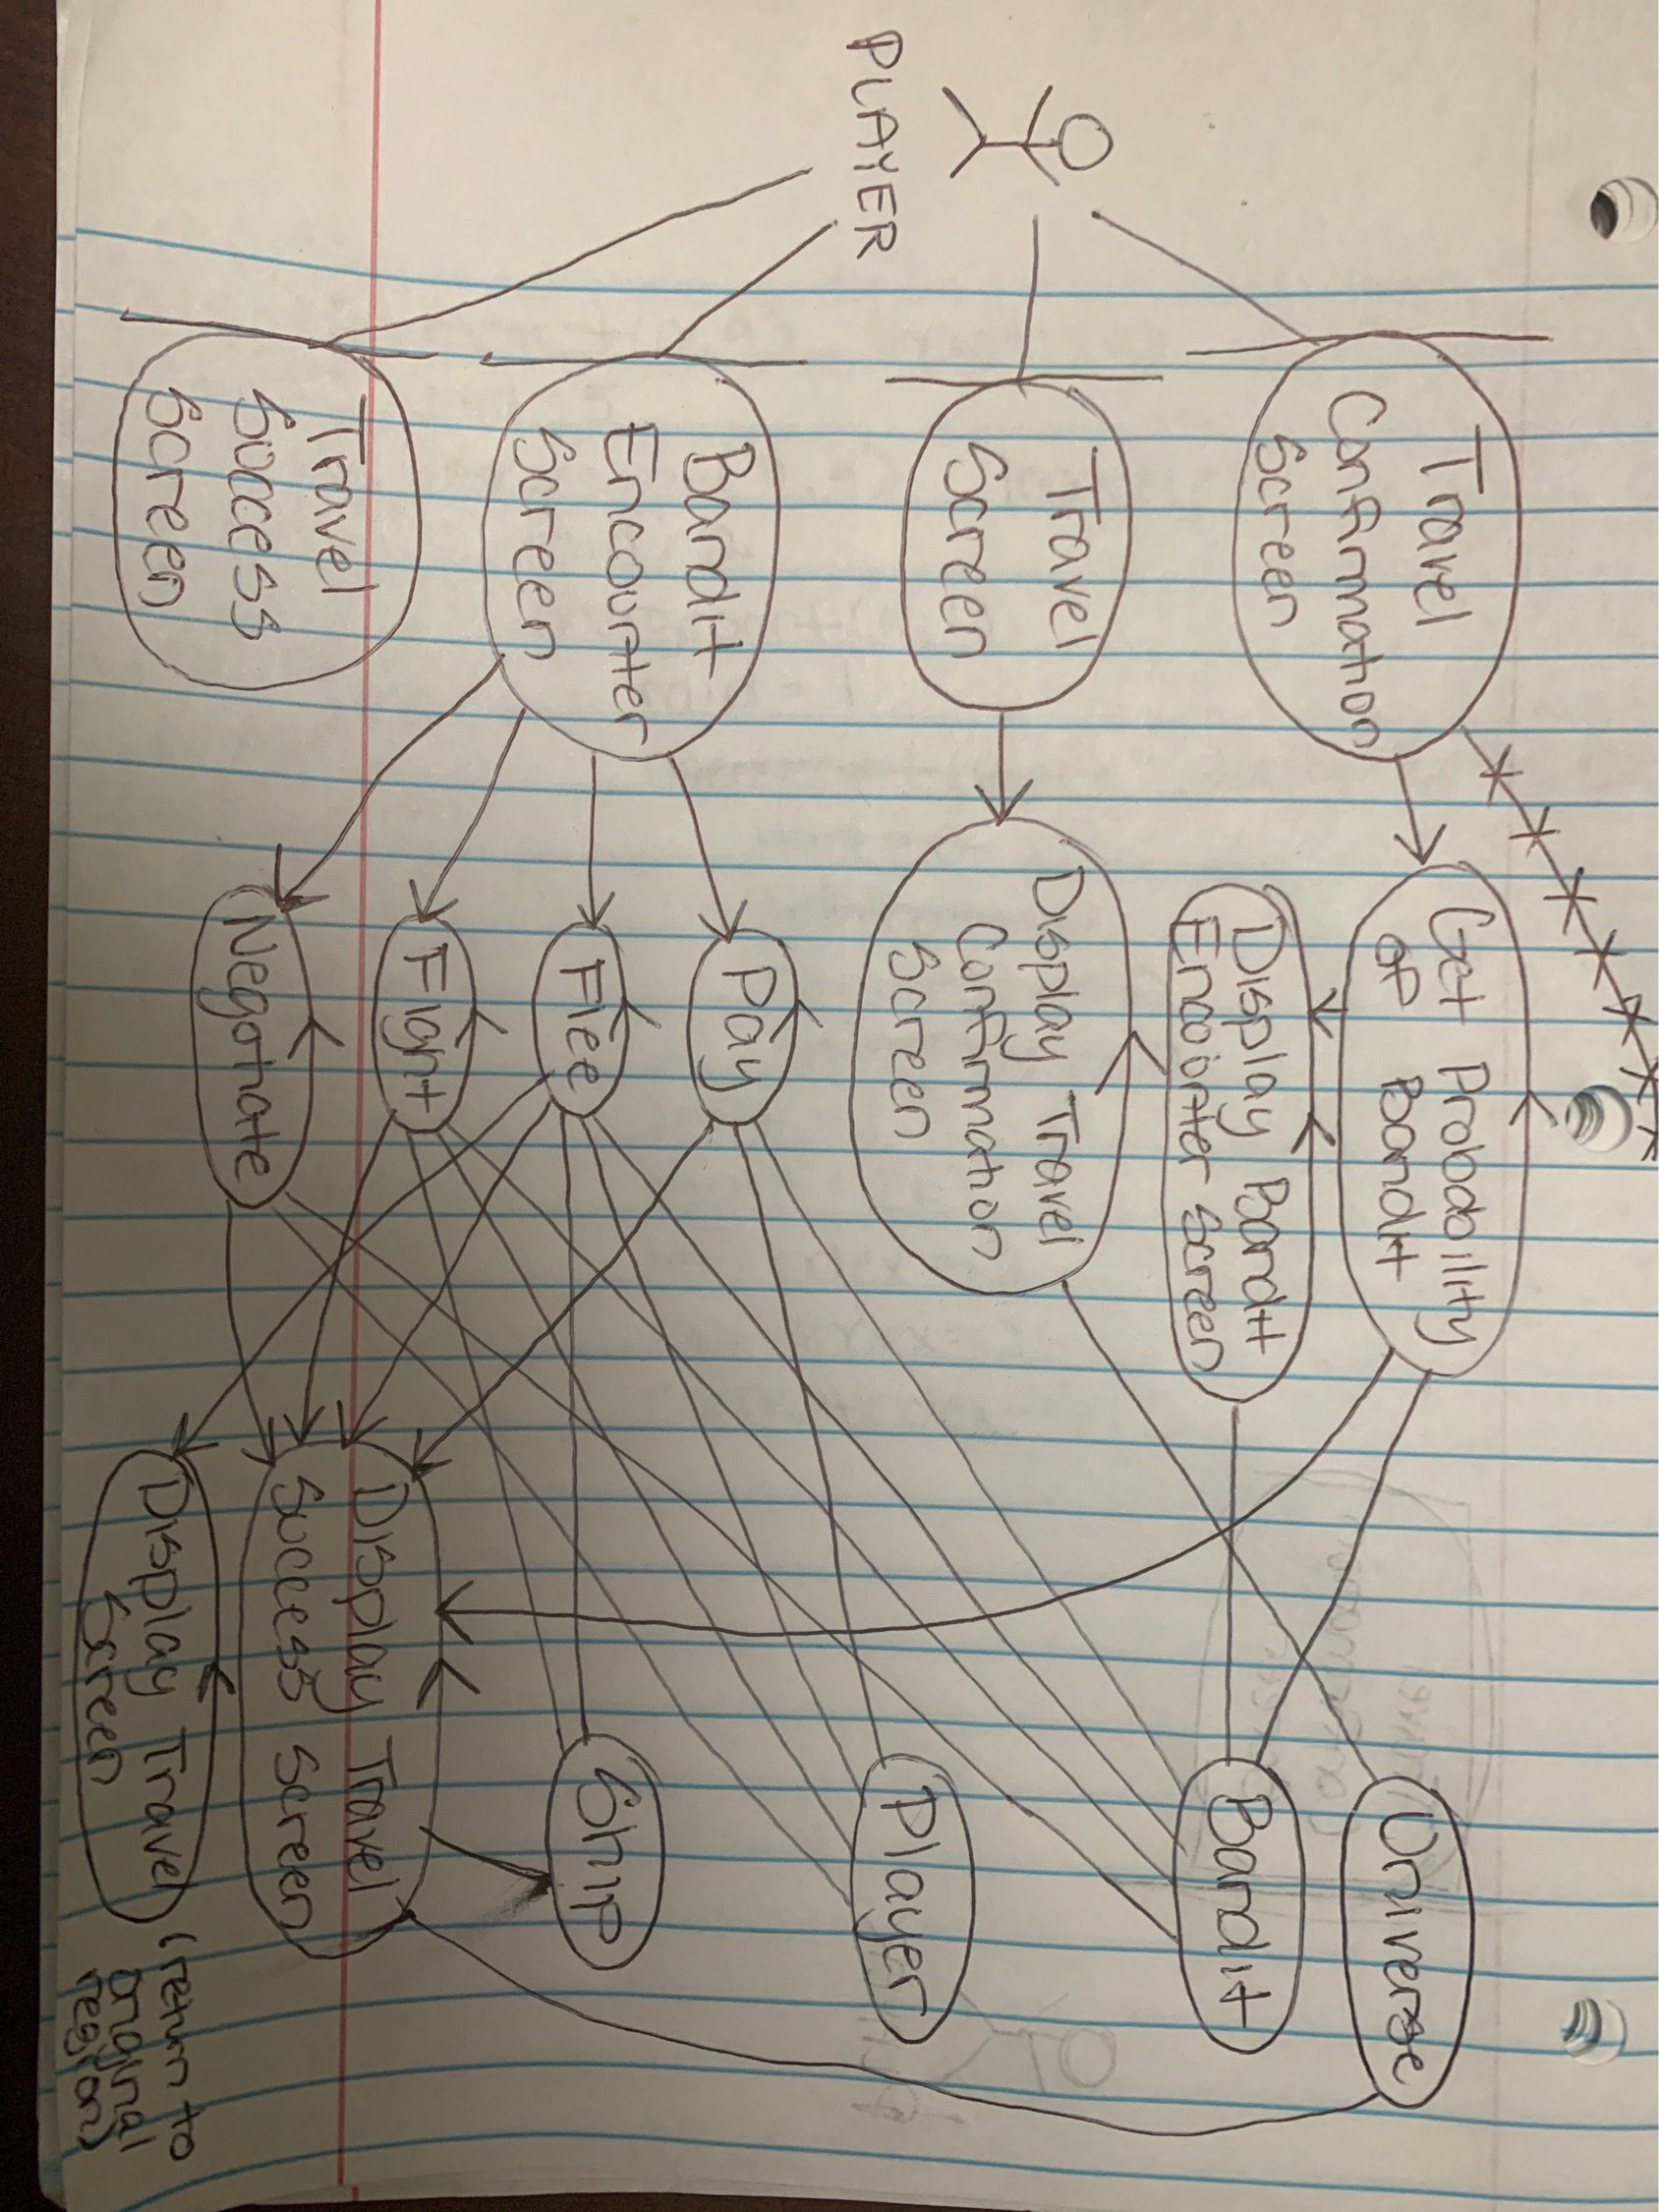 PLAYER
Travel
Confirmation
Screen
Travel
Screen
Bandit
Encounter
Screen
Travel
Success
Screen
Get Probability
of Bandit
Display Bandit
Encounter Screen
Display Travel
Confirmation
Screen
Pay
Flee
Fight
Negotiate
Universe
Bandit
Player
Ship
Display Travel
Success Screen
Display Travel
Screen
(return to
original
region)